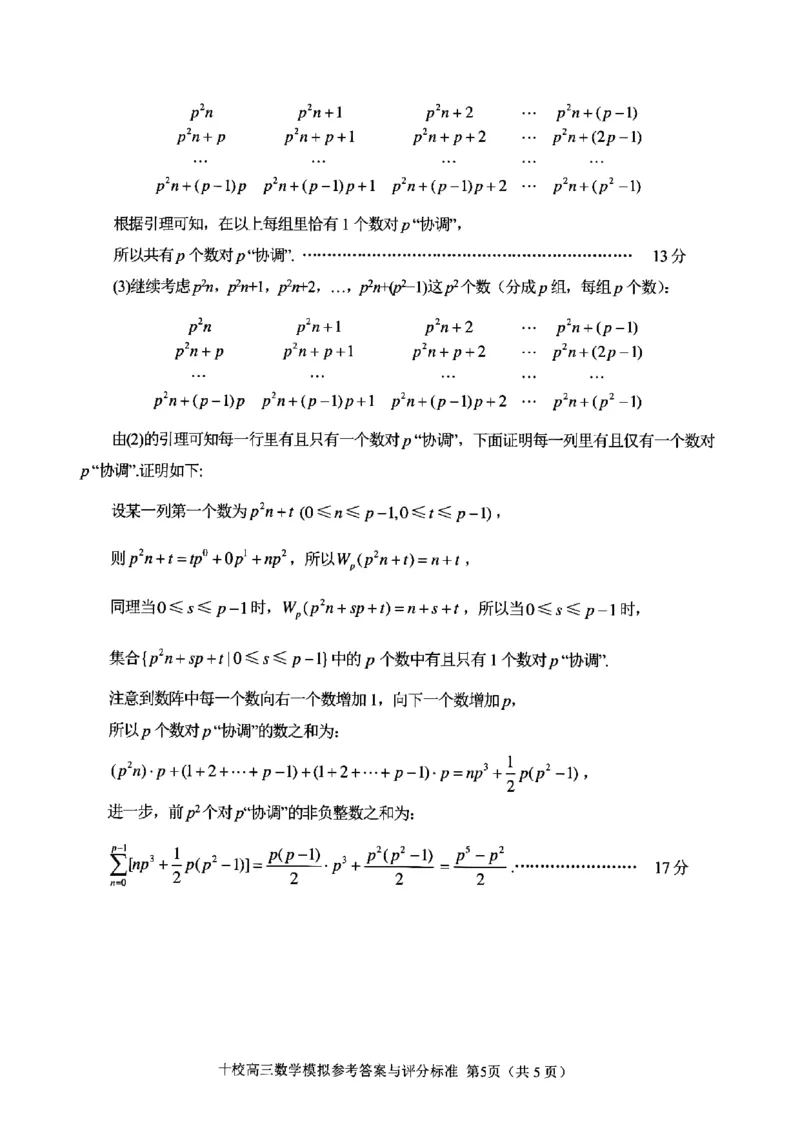 p²n p²n+1 p²n+2 ⋯ p²n+(p−1)
p²n+p p²n+p+1 p²n+p+2 ⋯ p²n+(2p−1)
⋯ ⋯ ⋯ ⋯ ⋯
p²n+(p−1)p p²n+(p−1)p+1 p²n+(p−1)p+2 ⋯ p²n+(p²−1)
根据引理可知，在以上每组里恰有1个数对p“协调”，
所以共有p个数对p“协调”. ⋯⋯⋯⋯⋯⋯⋯⋯⋯⋯⋯⋯⋯⋯⋯⋯⋯⋯⋯⋯ 13分
(3)继续考虑p²n，p²n+1，p²n+2，…，p²n+(p²−1)这p²个数（分成p组，每组p个数）：
p²n p²n+1 p²n+2 ⋯ p²n+(p−1)
p²n+p p²n+p+1 p²n+p+2 ⋯ p²n+(2p−1)
⋯ ⋯ ⋯ ⋯ ⋯
p²n+(p−1)p p²n+(p−1)p+1 p²n+(p−1)p+2 ⋯ p²n+(p²−1)
由(2)的引理可知每一行里有且只有一个数对p“协调”，下面证明每一列里有且仅有一个数对
p“协调”.证明如下:
设某一列第一个数为p²n+t (0≤n≤p−1,0≤t≤p−1)，
则p²n+t=tp⁰+0p¹+np²，所以Wₚ(p²n+t)=n+t，
同理当0≤s≤p−1时，Wₚ(p²n+sp+t)=n+s+t，所以当0≤s≤p−1时，
集合{p²n+sp+t|0≤s≤p−1}中的p个数中有且只有1个数对p“协调”.
注意到数阵中每一个数向右一个数增加1，向下一个数增加p，
所以p个数对p“协调”的数之和为：
(p²n)·p+(1+2+⋯+p−1)+(1+2+⋯+p−1)·p=np³+\frac{1}{2}p(p²−1)，
进一步，前p²个对p“协调”的非负整数之和为：
\sum_{n=0}^{p−1}[np³+\frac{1}{2}p(p²−1)]=\frac{p(p−1)}{2}·p³+\frac{p²(p²−1)}{2}=\frac{p⁵−p²}{2}.⋯⋯⋯⋯⋯⋯⋯⋯ 17分
十校高三数学模拟参考答案与评分标准 第5页（共5页）